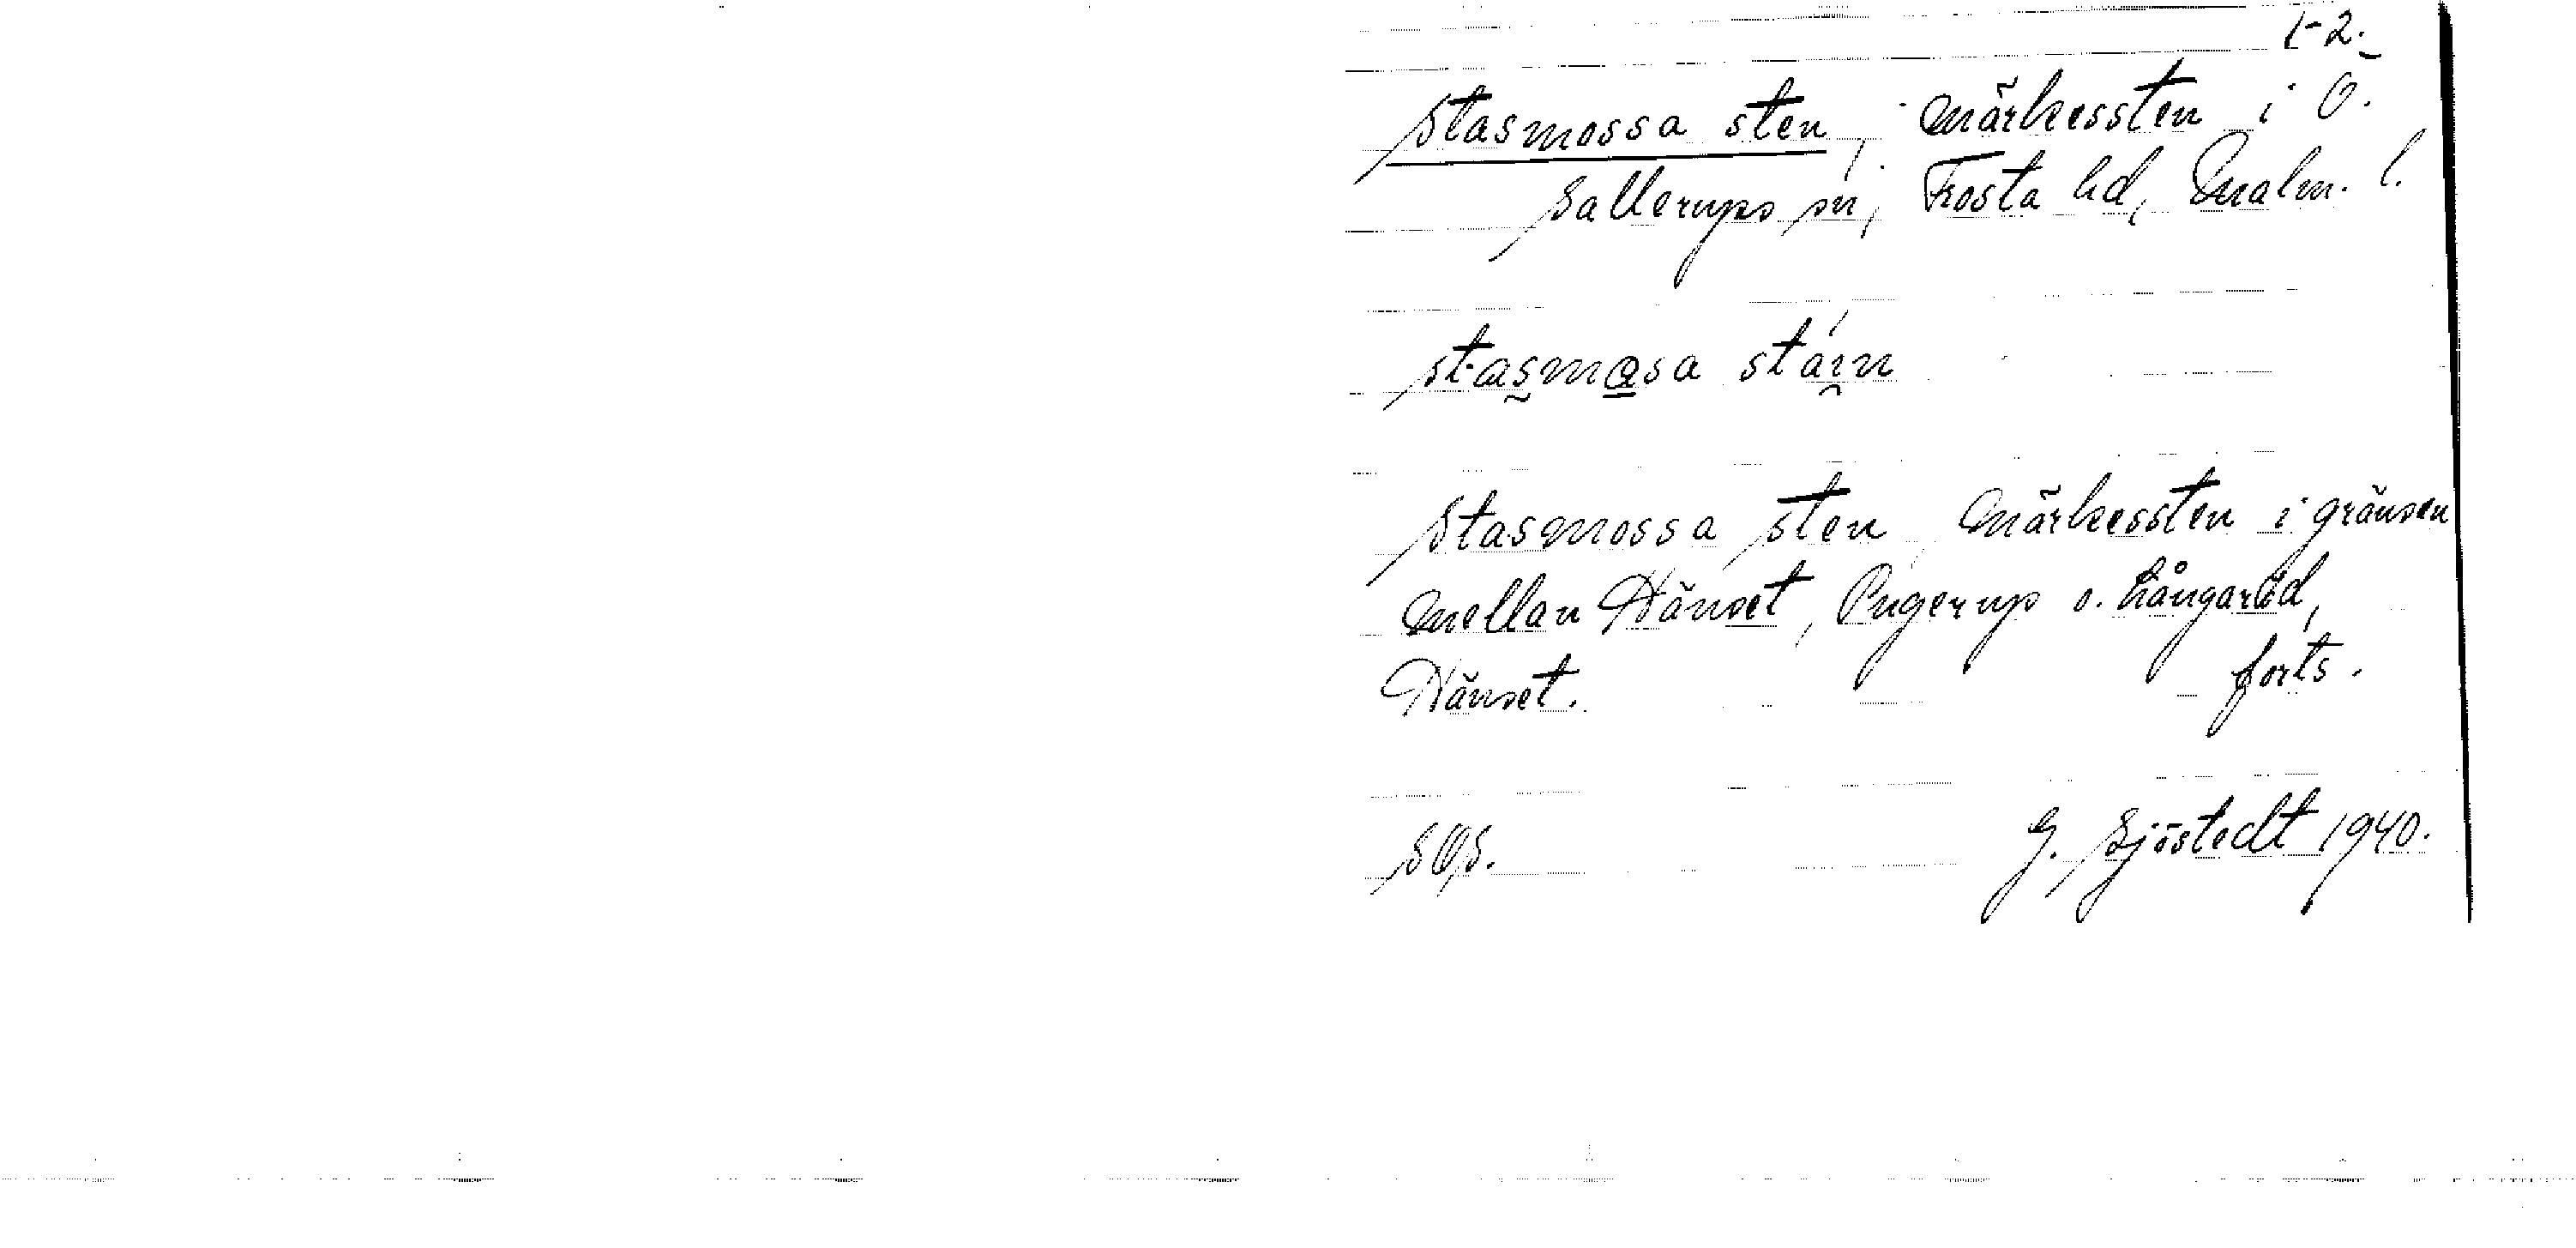 1-2.
Stasmossa sten, märkessten i Ö.
Sallerups sn, Frosta hd, Malm. l.
Stasmossa sten märkessten i gränsen
mellan Hänset, Pugerup o. Långaröd,
Hänset. forts.
SOS. G. Sjöstedt 1940.